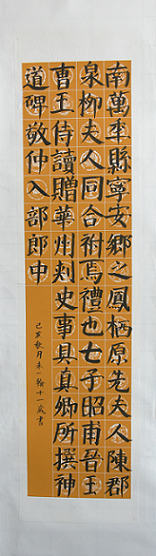 南萬年縣寧安鄉之鳳栖原先夫人陳郡
泉柳夫人同合祔焉禮也七子昭甫晉王
曹王侍讀贈華州刾史事具真卿所撰神
道碑敬仲入部郎中
己亥秋月 十一歲書